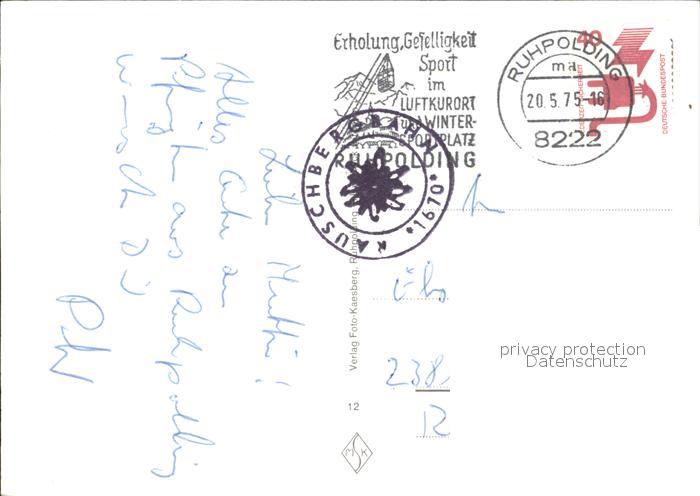 Erholung, Geselligkeit
Sport
im
LUFTKURORT
u. WINTER-
SPORTPLATZ
RUHPOLDING
RUHPOLDING
ma
20.5.75-16
8222
40
UNFALLSICHERHEIT
DEUTSCHE BUNDESPOST
RAUSCHBERGBAHN
*1670*
Liebe Mutti!
Alles Gute an
Pfingsten aus Ruhpolding
wünscht Dir
Verlag Foto-Kaesberg, Ruhpolding
12
MSK
238
privacy protection
Datenschutz